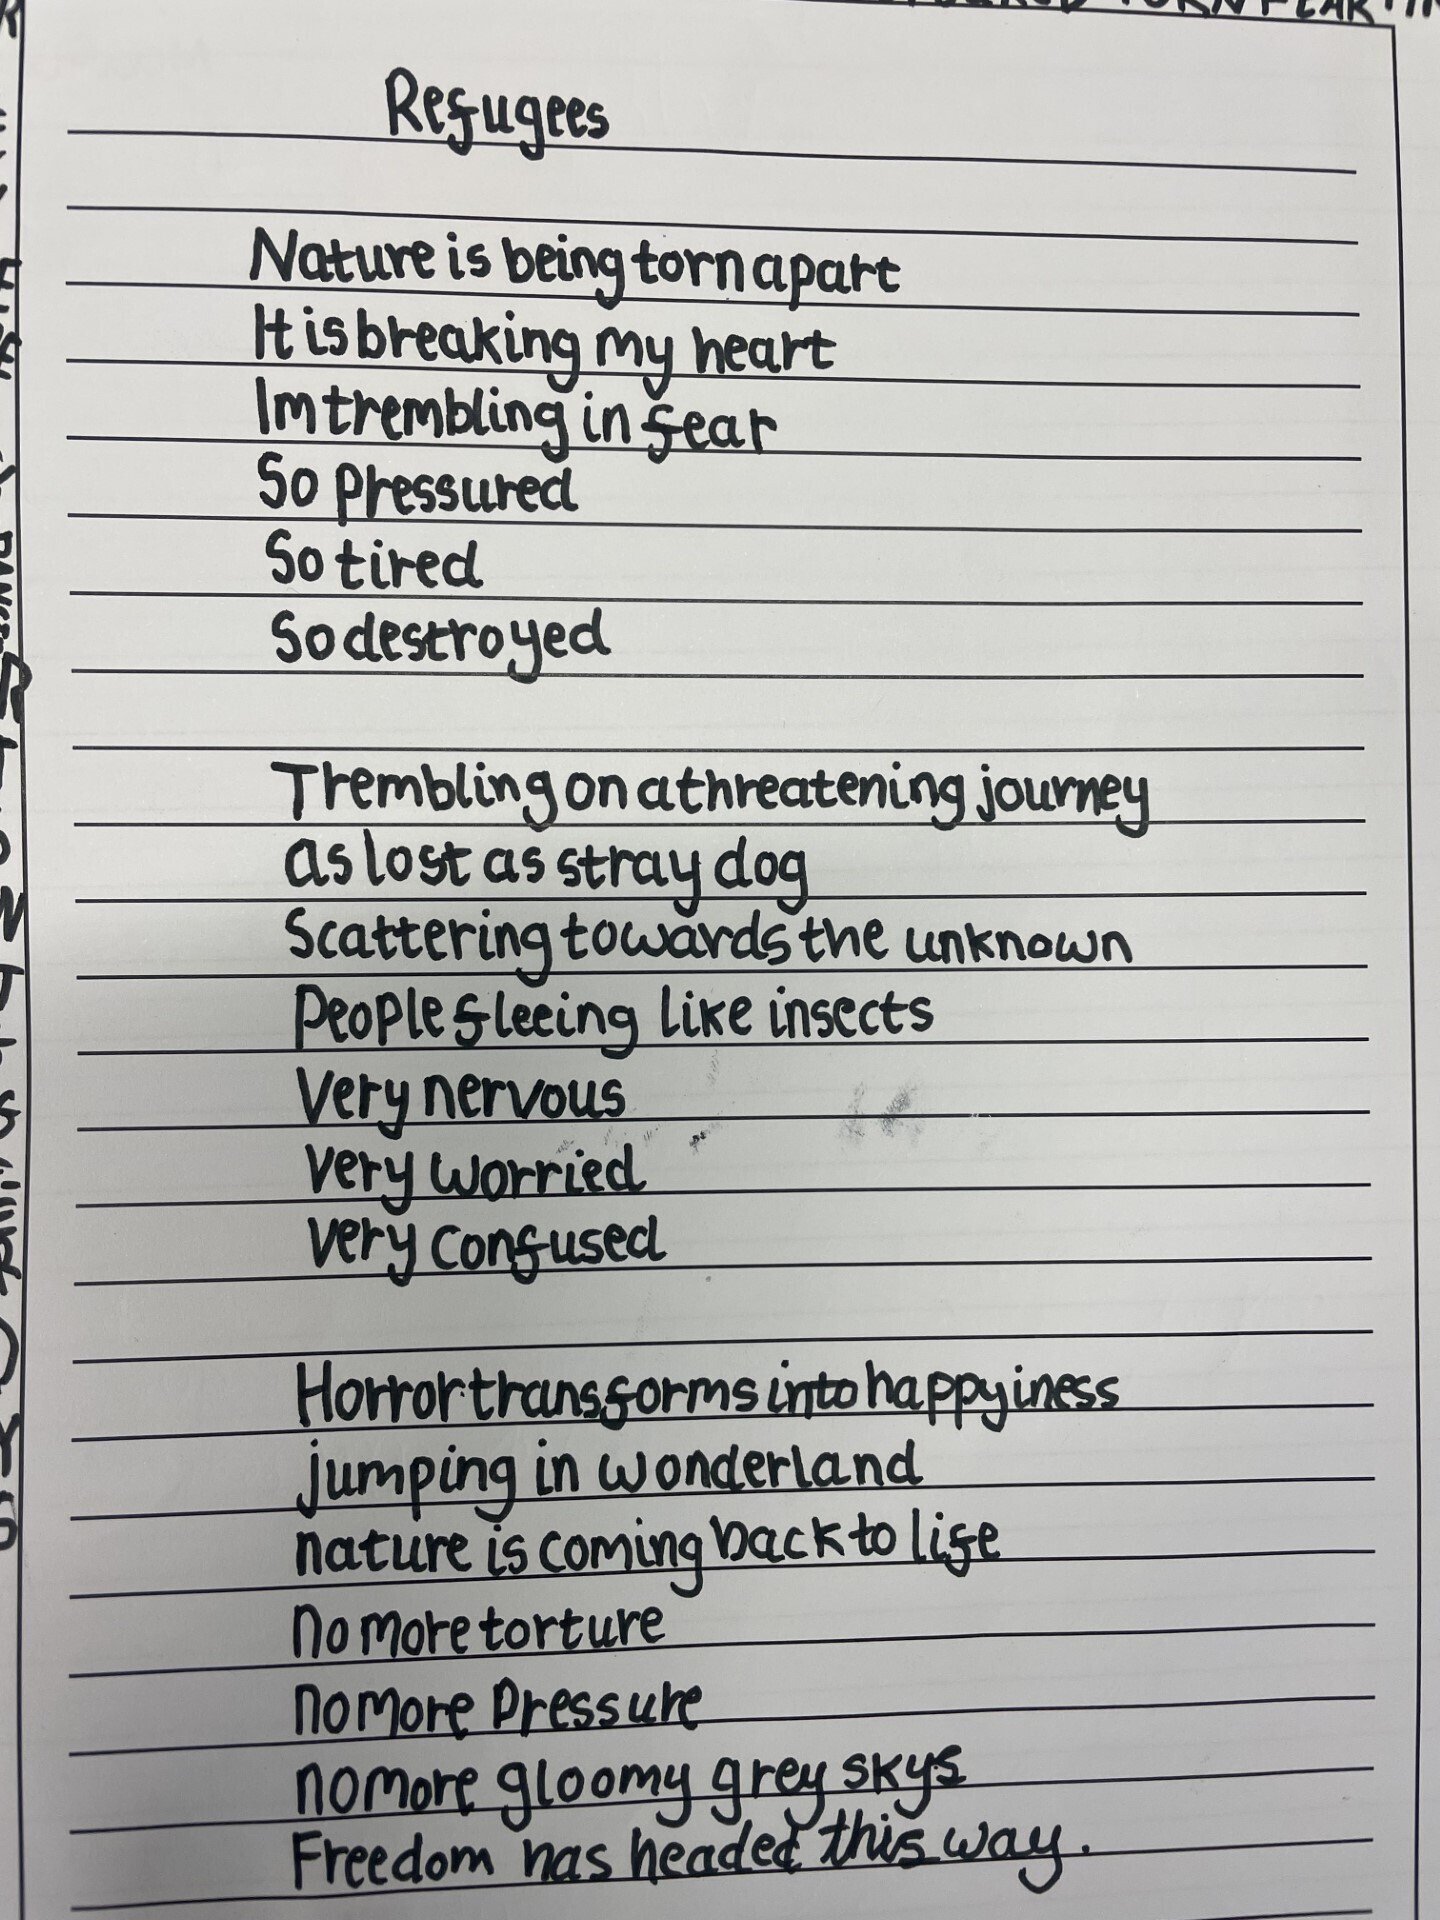 TORN FEAR
Refugees
Nature is being torn apart
It is breaking my heart
Im trembling in fear
So pressured
So tired
So destroyed
Trembling on a threatening journey
as lost as stray dog
Scattering towards the unknown
People fleeing like insects
Very nervous
very worried
very confused
Horror transforms into happyiness
jumping in wonderland
nature is coming back to life
no more torture
no more pressure
no more gloomy grey skys
Freedom has headed this way.